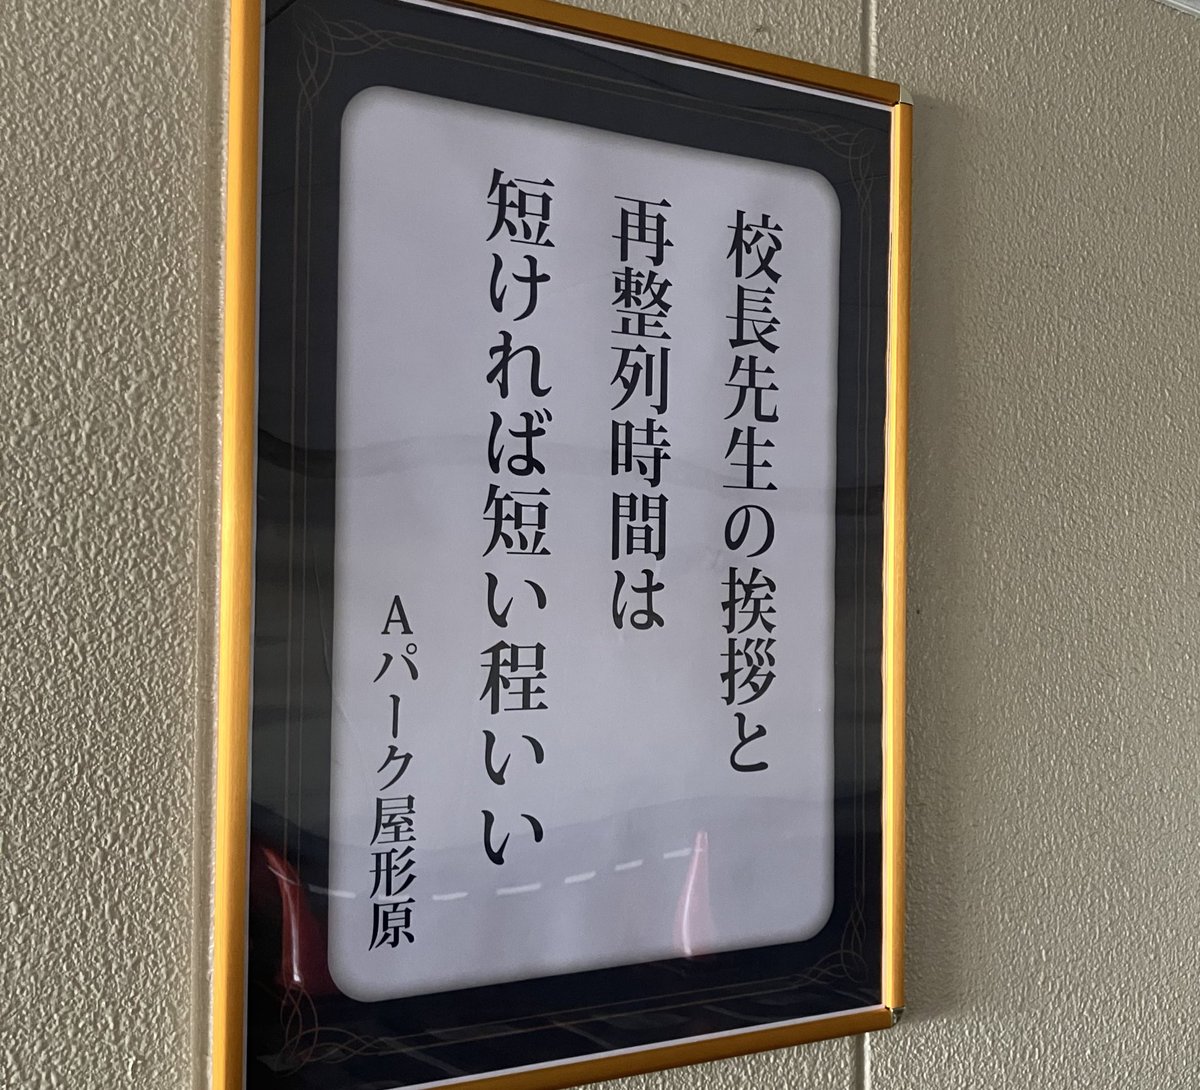 校長先生の挨拶と
再整列時間は
短ければ短い程いい
Aパーク屋形原